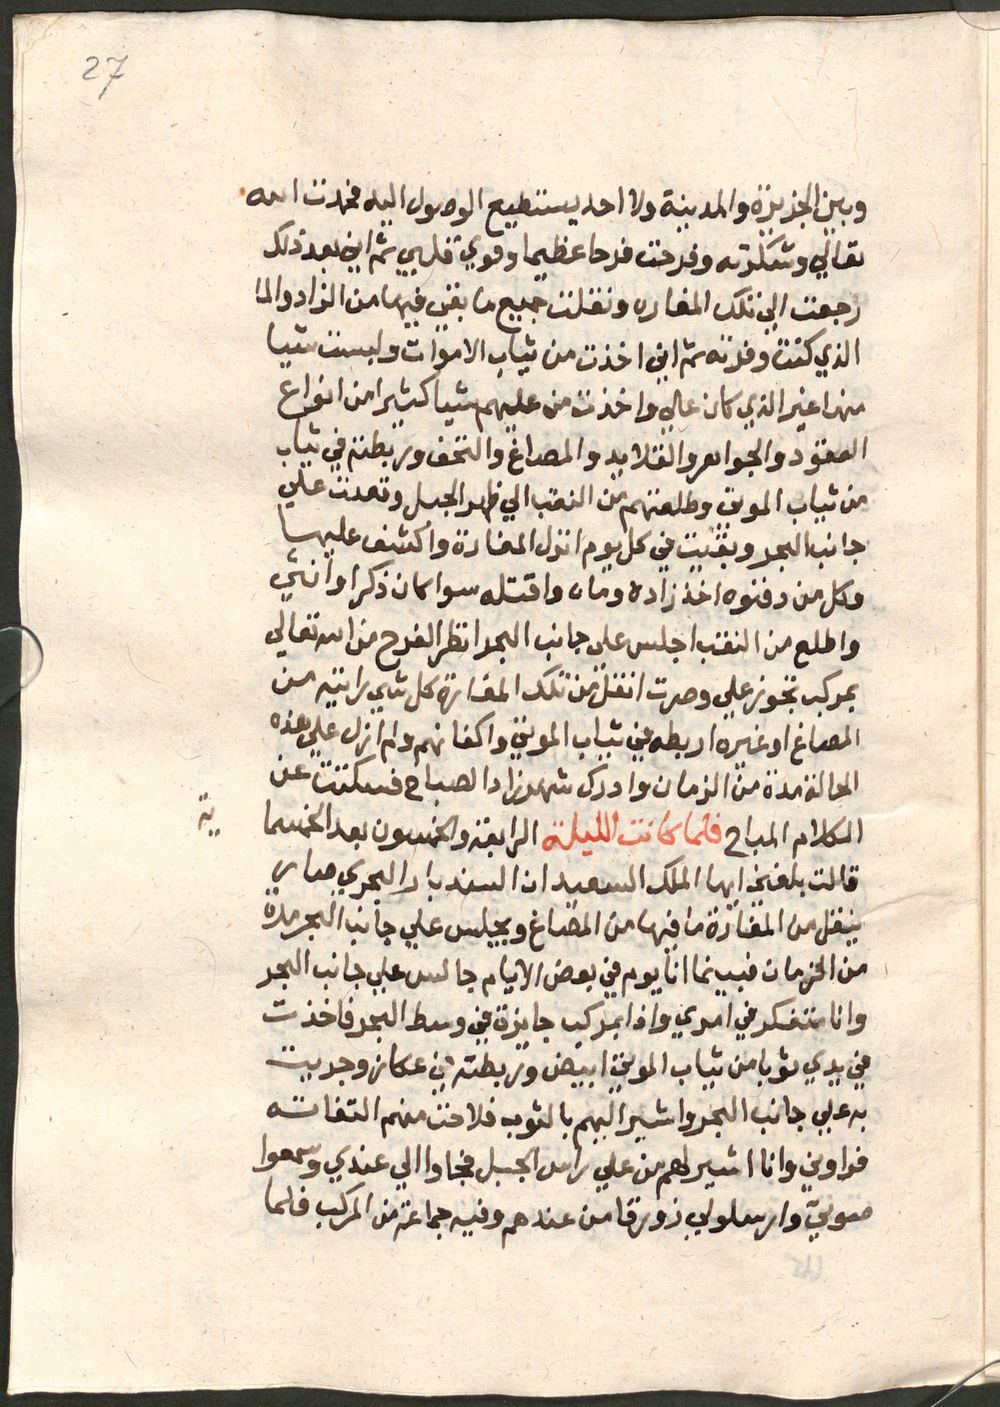 27
وبين الجزيرة والمدينة ولا احد يستطيع الوصول اليه فحمدت الله
تعالي وشكرته وفرحت فرحا عظيما وقوي قلبي ثم اني بعد ذلك
رجعت الي تلك المغاره ونقلت جميع ما بقي فيها من الزاد والما
الذي كنت وفرته ثم اني اخذت من ثياب الاموات ولبست شيا
منها غير الذي كان علي واخذت من عليهم شيا كثيرا من انواع
العقود والجواهر والقلايد والمصاغ والتحف وربطته في ثياب
من ثياب الموتي وطلعتهم من النقب الي ظهر الجبل وقعدت علي
جانب البحر وبقيت في كل يوم انزل المغارة واكشف عليها
وكل من دفنوه اخذ زاده وماه واقتله سوا كان ذكرا او انثي
واطلع من النقب اجلس علي جانب البحر انظر الفرج من الله تعالي
بمركب تجوز علي وصرت انقل من تلك المغارة كل شي رايته من
المصاغ او غيره اربطه في ثياب الموتي واكفانهم ولم ازل علي هذه
الحالة مدة من الزمان وادرك شهرزاد الصباح فسكتت عن
الكلام المباح فلما كانت الليلة الرابعة والخمسون بعد الخمسما
ية
قالت بلغني ايها الملك السعيد ان السندباد البحري صار
ينقل من المغارة ما فيها من المصاغ ويجلس علي جانب البحر مدة
من الزمان فبينما انا يوم في بعض الايام جالس علي جانب البحر
وانا متفكر في امري واذا بمركب جايزة في وسط البحر فاخذت
في يدي ثوبا من ثياب الموتي ابيض وربطته في عكاز وجريت
به علي جانب البحر واشير اليهم بالثوب فلاحت منهم التفاته
فراوني وانا اشير لهم من علي راس الجبل فجاوا الي عندي وسمعوا
صوتي وارسلوا لي زورقا من عندهم وفيه جماعة من المركب فلما